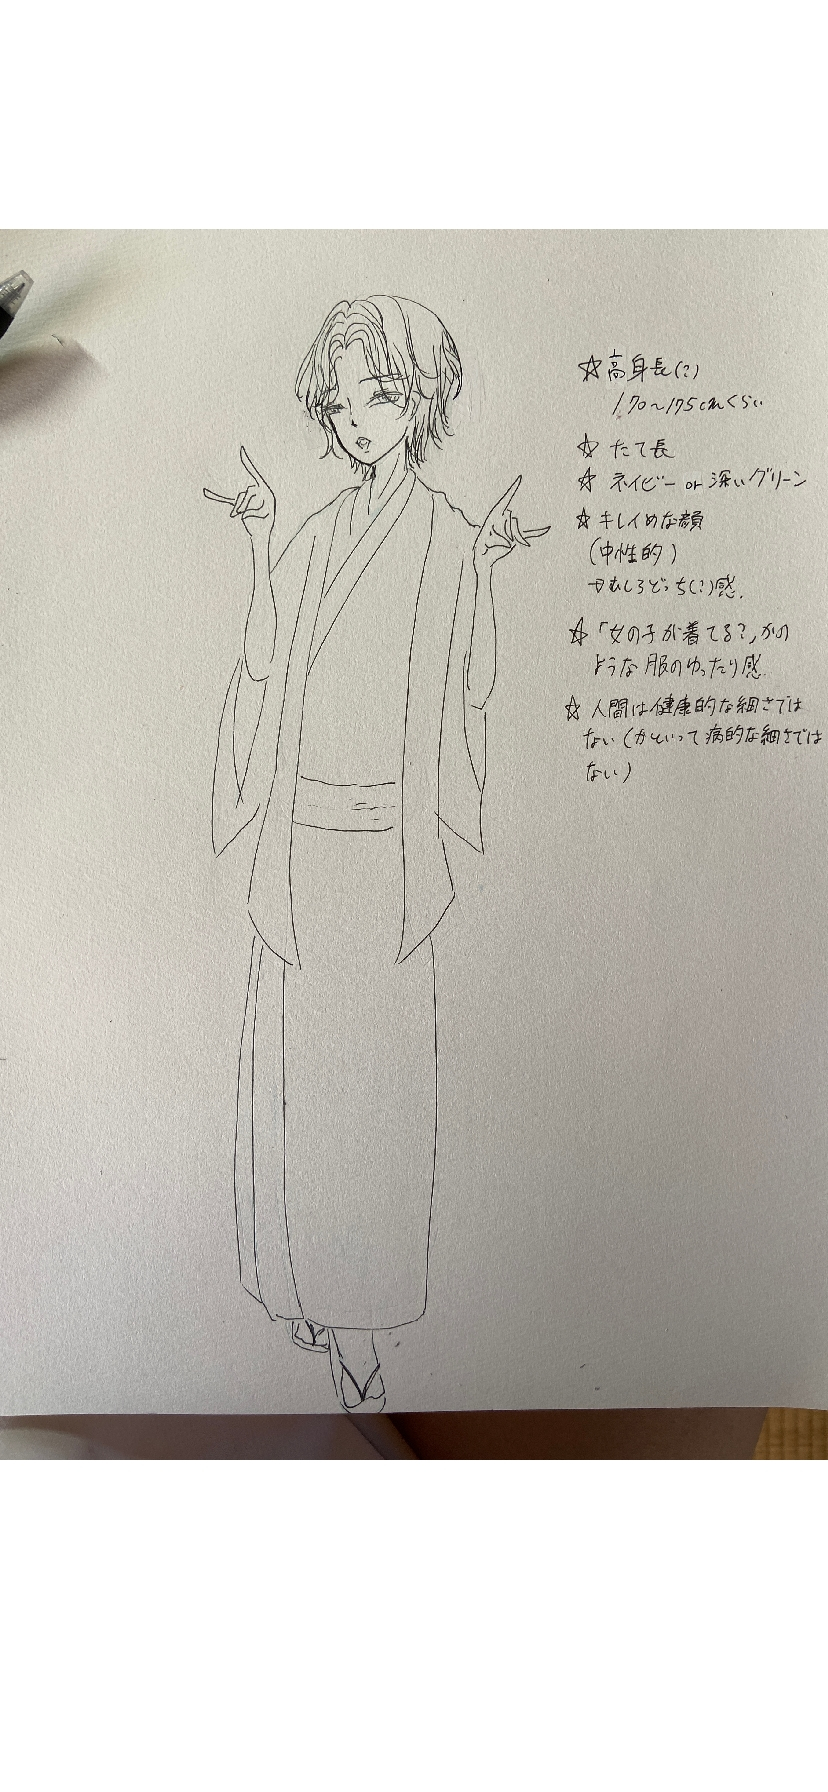 ☆高身長(?)
170〜175cmくらい
☆ たて長
☆ ネイビー or 深いグリーン
☆ キレイめな顔
(中性的)
→むしろどっち(?)感.
☆「女の子が着てる?」かの
ような服のゆったり感.
☆ 人間は健康的な細さでは
ない(かといって病的な細さでは
ない)